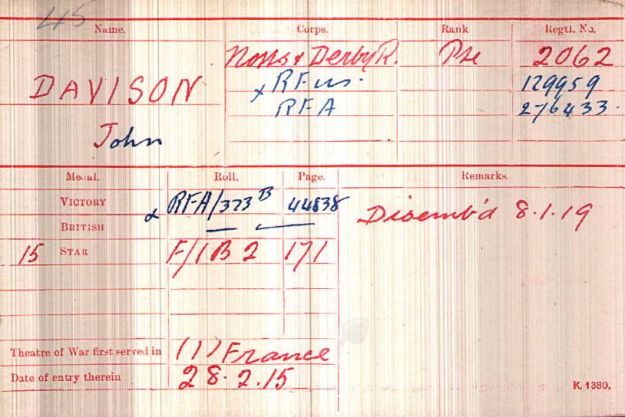 45
Name. Corps. Rank Regtl. No.
Notts & Derby R. Pte 2062
DAVISON x R Fus. 129959
John RFA 276433.
Medal. Roll. Page. Remarks.
VICTORY & RFA/373 B 44838 Disemb'd 8.1.19
BRITISH
15 STAR F/1B2 171
Theatre of War first served in (1) France
Date of entry therein 28.2.15
K. 1380.